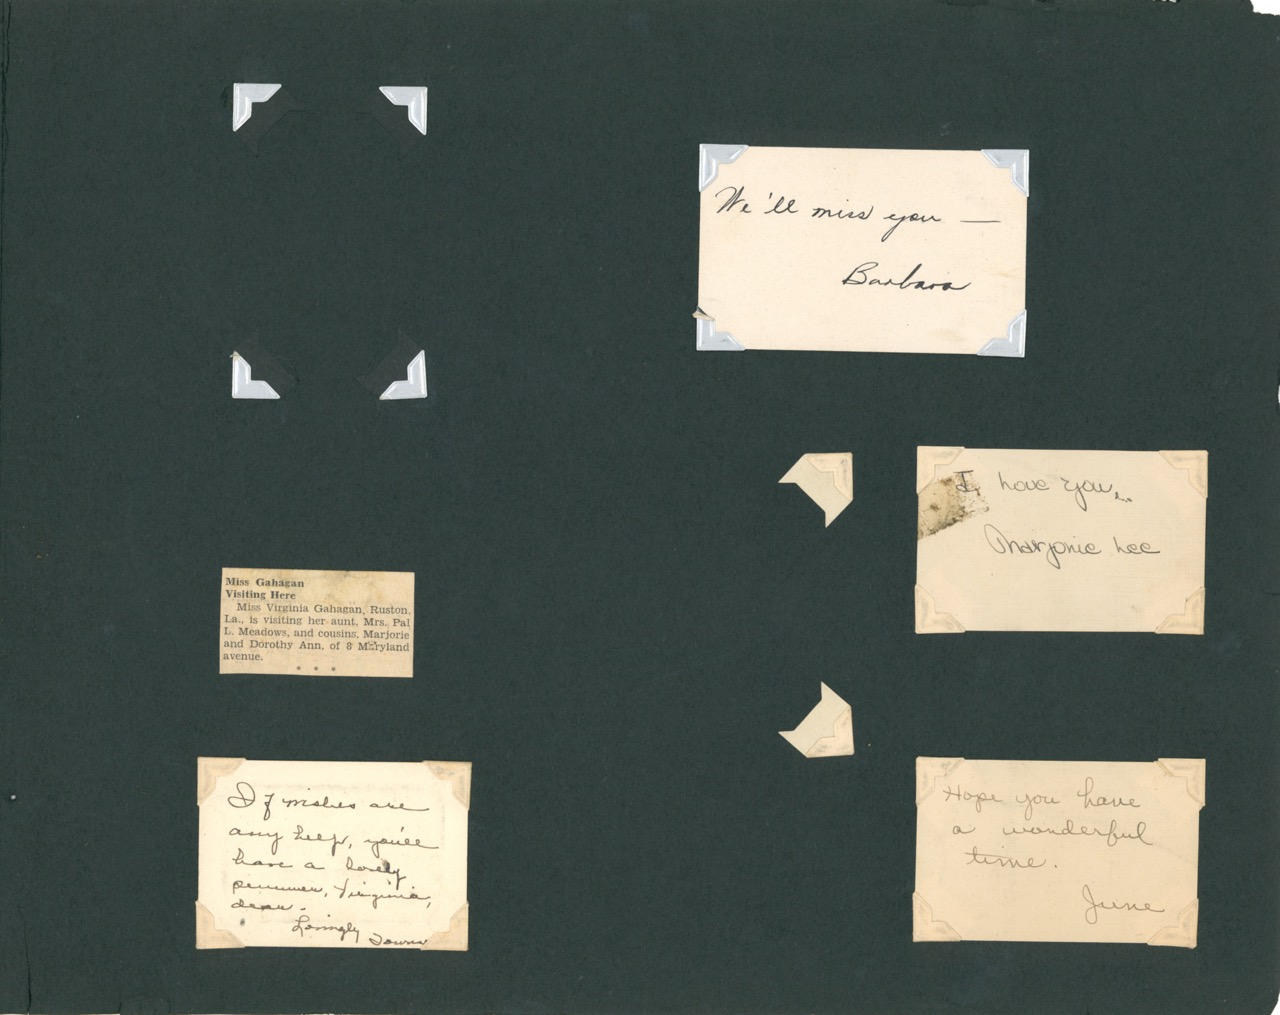 We'll miss you —
Barbara
I love you
Marjorie Lee
Miss Gahagan
Visiting Here
Miss Virginia Gahagan, Ruston,
La., is visiting her aunt, Mrs. Pal
L. Meadows, and cousins, Marjorie
and Dorothy Ann, of 8 Maryland
avenue.
* * *
If wishes are
any help, you'll
have a lovely
summer, Virginia,
dear.
Lovingly
Hope you have
a wonderful
time.
June